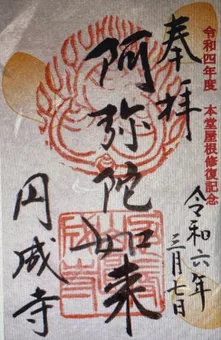 令和四年度 本堂屋根修復記念
奉拝
令和六年
三月七日
阿弥陀如来
円成寺